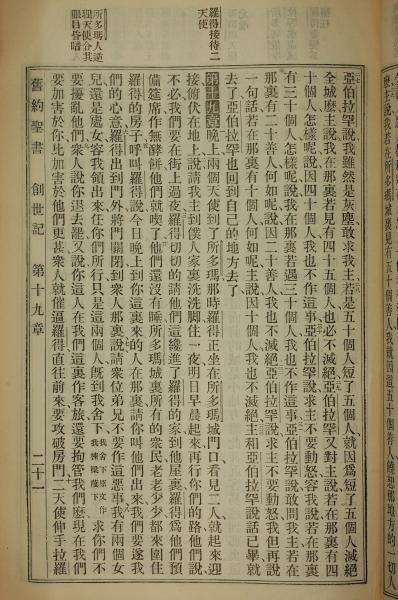 亞伯拉罕說我雖然是灰塵敢求我主若是五十個人短了五個人就因爲短了五個人滅絕
全城麽主說我若在那裏若見有四十五個人也必不滅絕亞伯拉罕又對主說若在那裏有四
十個人怎樣呢說因四十個人我也不作這事亞伯拉罕說求主不要動怒容我說若在那裏
有三十個人怎樣呢說我在那裏若遇三十個人我也不作這事亞伯拉罕說敢問我主若在
那裏有二十善人何如呢說因二十善人我也不滅絕亞伯拉罕說求主不要動怒我但再說
一句話若在那裏有十個人何如呢主說因十個人我也不滅絕主和亞伯拉罕說話已畢就
去了亞伯拉罕也回到自己的地方去了
第十九章晚上兩個天使到了所多瑪那時羅得正坐在所多瑪城門口看見二人就起來迎
接俯伏在地上說請我主到僕人家裏洗洗脚住一夜明日早晨起來再行你們的路他們說
不必我們要在街上過夜羅得切切的請他們這纔進了羅得的家到他屋裏羅得爲他們預
備筵席作無酵餅他們就喫了他們還沒有睡所多瑪城裏所有的衆民老老少少都來圍住
羅得的房子呼叫羅得說今日晚上到你這裏來的人在那裏請你叫他們出來我們要遂我
們的心意羅得出到門外將門關閉到衆人那裏說請衆位弟兄不要作這惡事我有兩個女
兒還是處女容我領出來任你們所行只是這兩個人旣到我舍下我舍下原文作我棟樑蔭下求你們不
要擾亂他們衆人說你退去罷又說你這人在我們這裏作客旅還要拘管我們麽現在我們
要加害於你比加害於他們更甚衆人就催逼羅得直往前來要攻破房門二天使伸手拉羅
羅得接待二
天使
所多瑪人逆
理天使令其
眼目昏暗
舊約聖書 創世記 第十九章 二十一